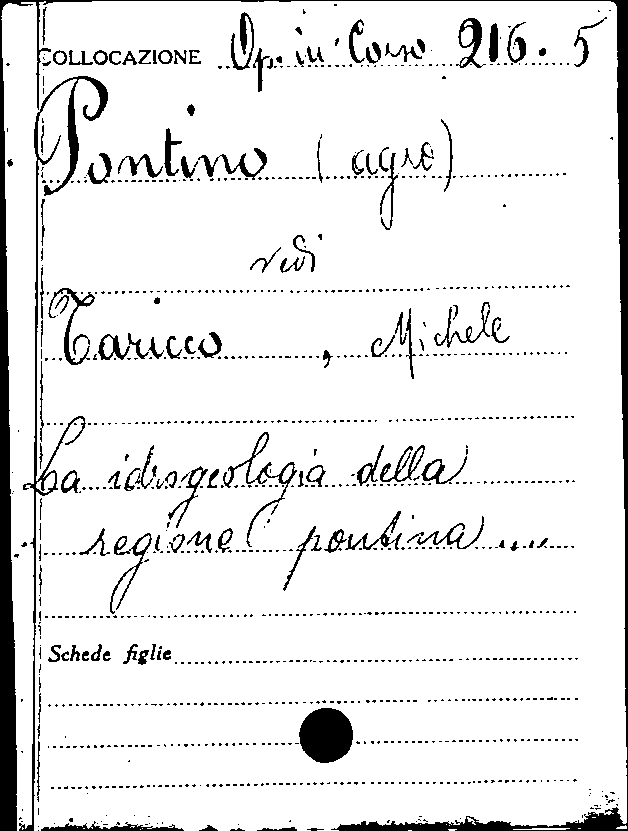 COLLOCAZIONE Op. in Corso 216. 5
Pontino (agro)
vedi
Taricco, Michele
La idrogeologia della
regione pontina ....
Schede figlie